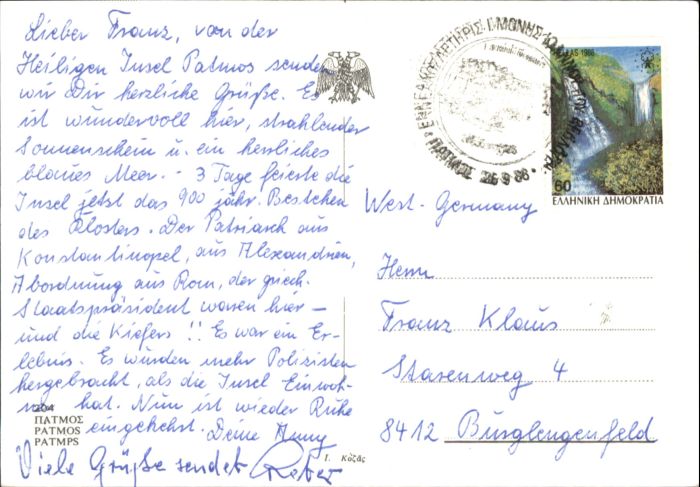 Lieber Franz, von der
Heiligen Insel Patmos senden
wir Dir herzliche Grüße. Es
ist wundervoll hier, strahlender
Sonnenschein u. ein herrliches
blaues Meer. - 3 Tage feierte die
Insel jetzt das 900 jähr. Bestehen
des Klosters. Der Patriarch aus
Konstantinopel, aus Alexandrien,
Abordnung aus Rom, der griech.
Staatspräsident waren hier -
und die Kiefers !! Es war ein Er-
lebnis. Es wurden mehr Polizisten
hergebracht, als die Insel Einwoh-
ner hat. Nun ist wieder Ruhe
eingekehrt. Deine Anny
Viele Grüße sendet Peter
204
ΠΑΤΜΟΣ
PATMOS
PATMPS
I. Κοζάς
ΠΑΤΜΟΣ 26 9 88
HELLAS 1988
60
ΕΛΛΗΝΙΚΗ ΔΗΜΟΚΡΑΤΙΑ
West-Germany
Herrn
Franz Klaus
Starenweg 4
8412 Burglengenfeld